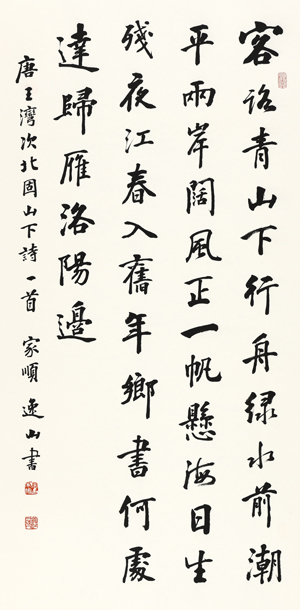 客路青山下行舟緑水前潮
平兩岸闊風正一帆懸海日生
殘夜江春入舊年鄉書何處
達歸雁洛陽邊
唐王灣次北固山下詩一首 家順 逸山書